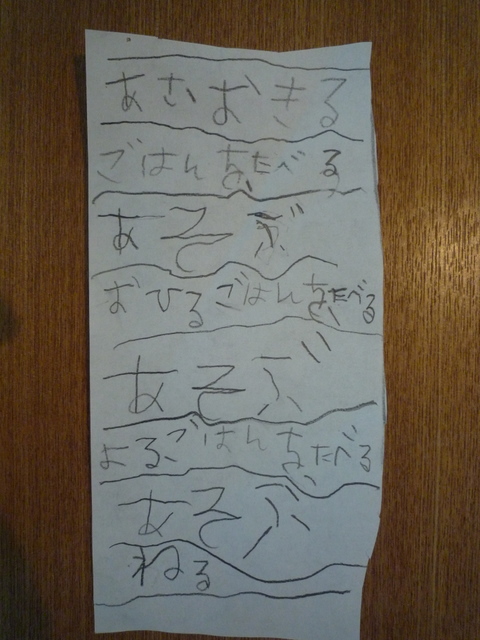 あさおきる
ごはんをたべる
あそぶ
おひるごはんをたべる
あそぶ
よるごはんをたべる
あそぶ
ねる